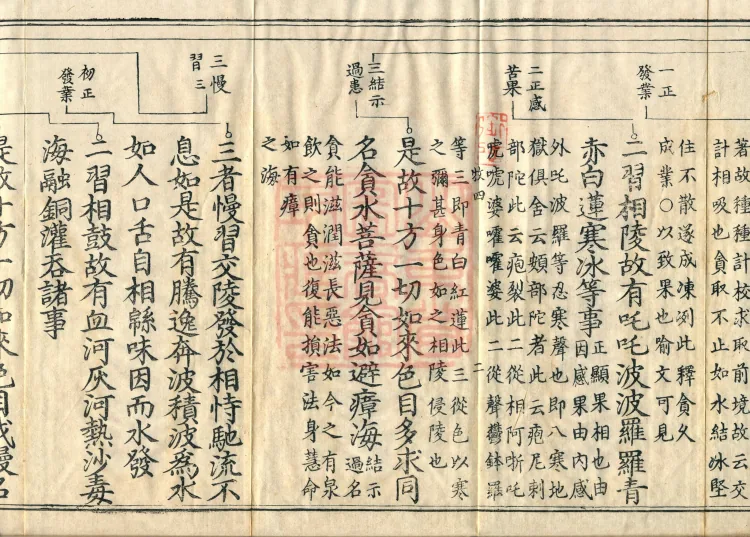 著故種種計校求取前境故云交
計相吸也貪取不止如水結冰堅
住不散遂成凍冽此釋貪久
成業○以致果也喻文可見
一正
發業
二習相陵故有吒吒波波羅羅青
赤白蓮寒冰等事正顯果相也由
因感果由內感
外吒波羅等忍寒聲也即八寒地
獄俱舍云頞部陀者此云疱尼剌
部陀此云疱裂此二從相阿哳吒
虎虎婆嚯嚯婆此二從聲欝鉢羅
二正感
苦果
牧四
二
等三即青白紅蓮此三從色以寒
之彌甚身色如之相陵侵陵也
三結示
過患
是故十方一切如來色目多求同
名貪水菩薩見貪如避瘴海結示
過名
貪能滋潤滋長惡法如今之有泉
飲之則貪也復能損害法身慧命
如有瘴
之海
三慢
習三
三者慢習交陵發於相恃馳流不
息如是故有騰逸奔波積波為水
如人口舌自相緜味因而水發
初正
發業
二習相鼓故有血河灰河熱沙毒
海融銅灌吞諸事
是故十方一切如來色目我慢名